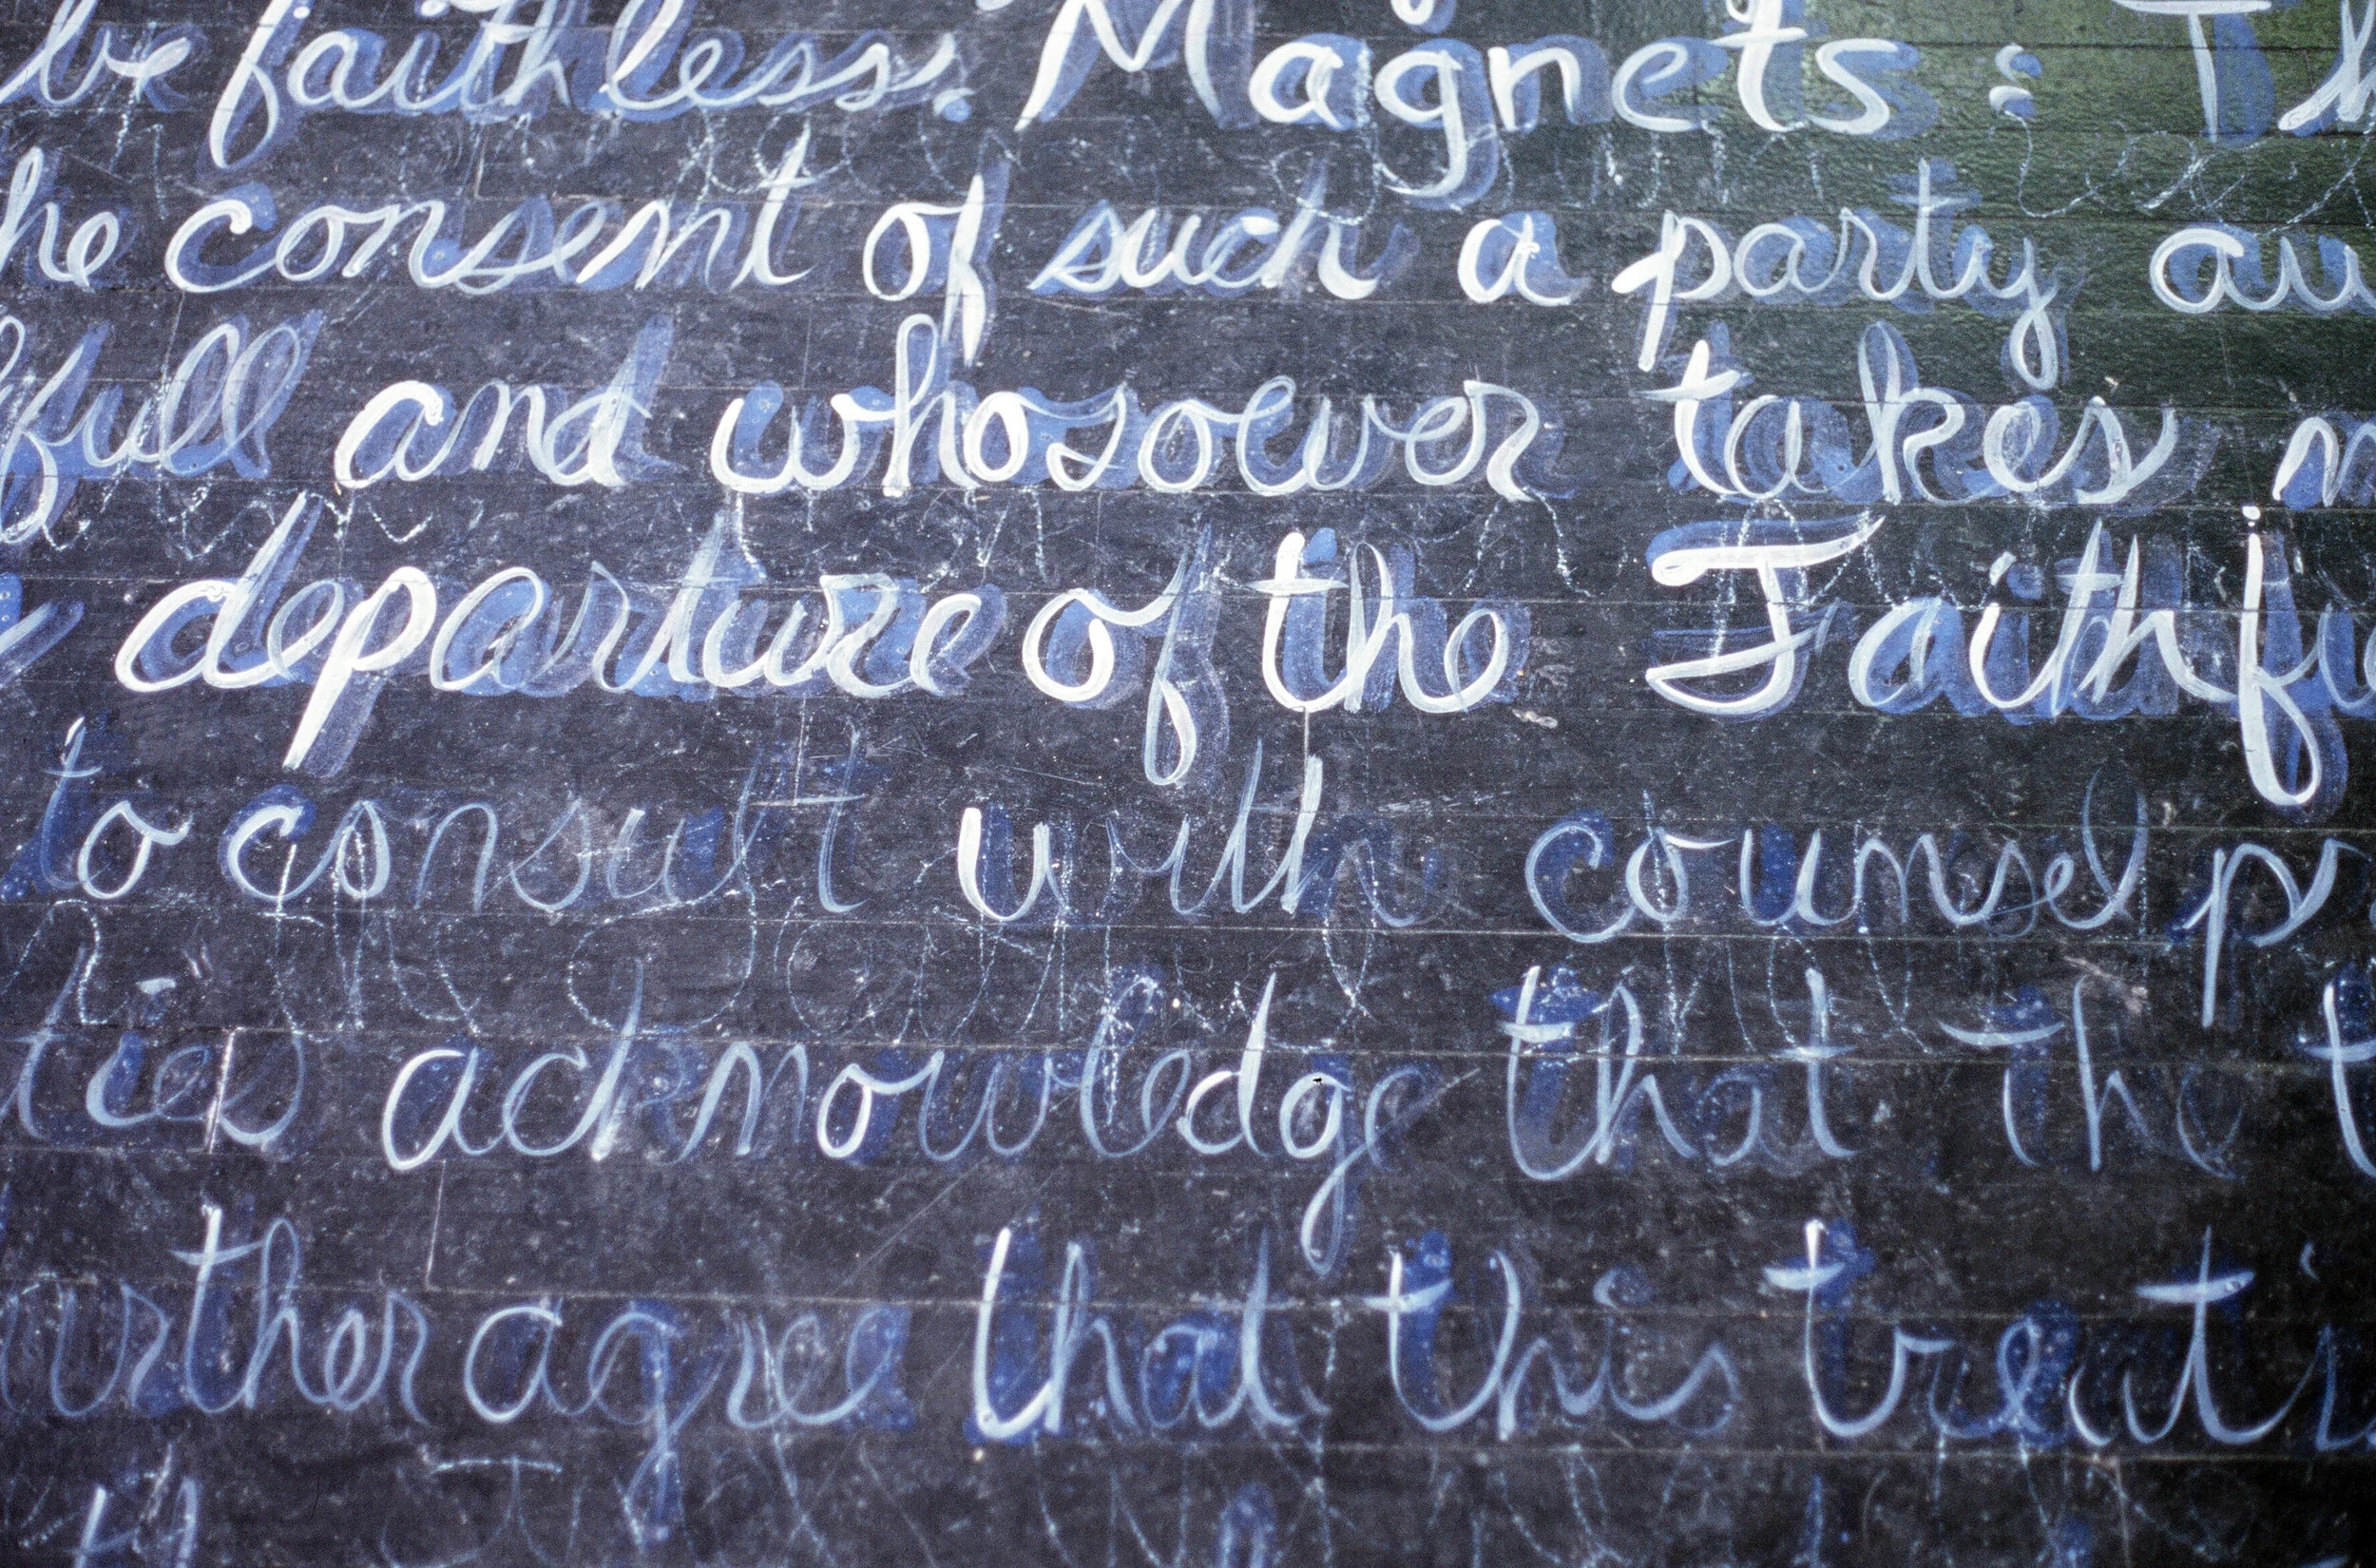 be faithless. Magnets: Th
he consent of such a party au
full and whosoever takes
departure of the Faithfu
to consult with counsel pr
ties acknowledge that the t
urther agree that this treati